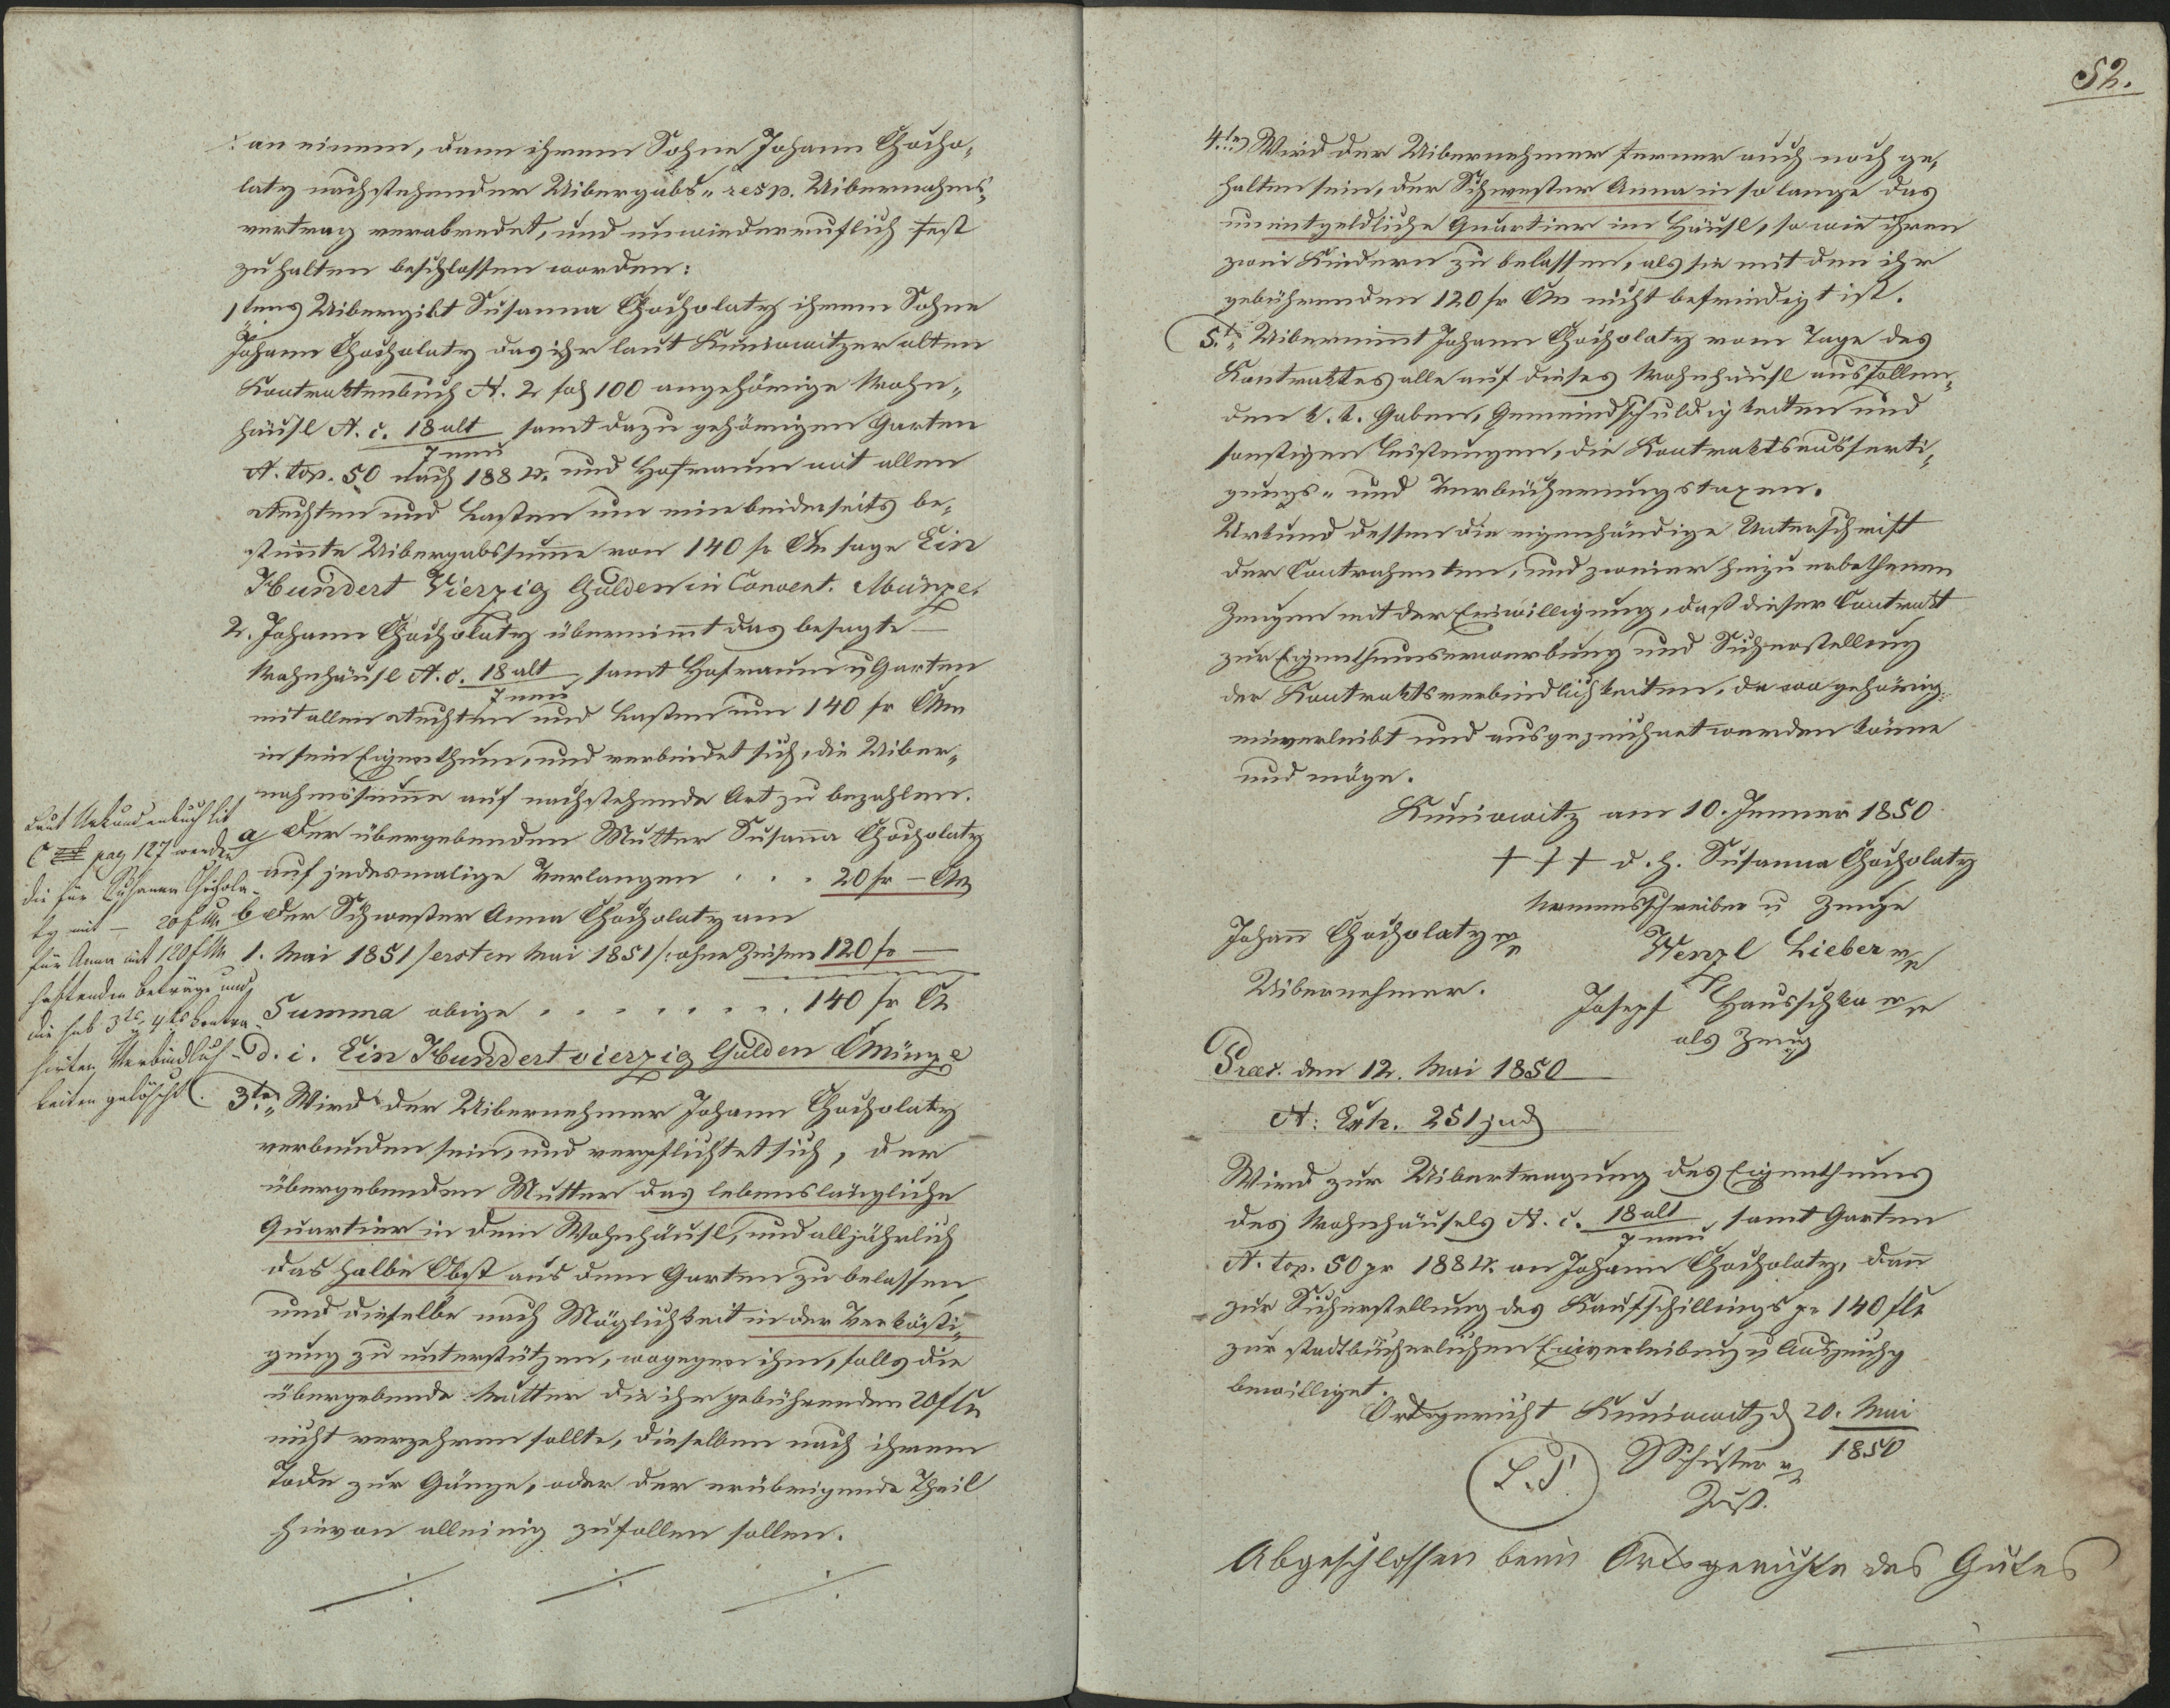 an einem, dann ihrem Sohne Johann Chocho-
laty nachstehender Uibergabs- resp. Uibernahms-
vertrag verabredet, und unwiederruflich fest
zu halten beschlossen worden:
1tens Uibergibt Susanna Chocholaty ihrem Sohne
Johann Chocholaty das ihr laut Kuniowitzer alten
Kontraktenbuch N. 2 fol 100 angehörige Wohn-
häusl N. c. 18 alt / 7 neu samt dazu gehörigen Garten
N. top. 50 nach 188 und Hofraum mit allen
Rechten und Lasten um eine beiderseits be-
stimte Uibergabssume von 140 fr CM sage Ein
Hundert Vierzig Gulden in Convent. Münze.
2. Johann Chocholaty übernimt das besagte
Wohnhäusl N. c. 18 alt / 7 neu samt Hofraum u Garten
mit allen Rechten und Lasten um 140 fr CM
in sein Eigenthum, und verbindet sich, die Uiber-
nahmssume auf nachstehende Art zu bezahlen.
a der übergebenden Mutter Susana Chocholaty
auf jedesmalige Verlangen . . . 20 fr – CM
b der Schwester Anna Chocholaty am
1. Mai 1851 /ersten Mai 1851/: ohne Zinsen 120 fr —
Summa obige . . . . . . . . 140 fr CM
d. i. Ein Hundert vierzig Gulden CMünze
3tens Wird der Uibernehmer Johann Chocholaty
verbunden sein, und verpflichtet sich, der
übergebenden Mutter das lebenslängliche
Quartier in dem Wohnhäusl, und alljährlich
das halbe Obst aus dem Garten zu belassen,
und dieselbe nach Möglichkeit in der Verkösti-
gung zu unterstützen, wogegen ihm, falls die
übergebende Mutter die ihr gebührenden 20 f CM
nicht verzehren sollte, dieselben nach ihrem
Tode zur Gänze, oder der erübrigende Theil
hievon alleinig zufallen sollen.
Laut Urkundenbuch lit
C pag 127 werden
die für Susanna Chochola-
ty mit – 20 f CM
für Anna mit 120 f CM
haftenden Beträge und
die sub 3tes, 4tes kontra-
hirten Verbindlich-
keiten gelöscht.
52.
4tes Wird der Uibernehmer ferner auch noch ge-
halten sein, der Schwester Anna in so lange das
uneintgeldliche Quartier im Häusl, so wie ihren
zwei Kindern zu belassen, als sie mit den ihr
gebührenden 120 fr CM nicht befriedigt ist.
5tes Uibernimt Johann Chocholaty vom Tage des
Kontraktes alle auf dieses Wohnhäusl ausfallen-
den k. k. Gaben, Gemeindschuldigkeiten und
sonstigen Leistungen, die Kontraktsausferti-
gungs- und Verbücherungstaxen.
Urkund dessen die eigenhändige Unterschrift
der Contrahenten, und zweier hiezu erbethenen
Zeugen mit der Einwilligung, daß dieser Contrakt
zur Eigenthumserwerbung und Sicherstellung
der Kontraktsverbindlichkeiten, da wo gehörig
einverleibt und ausgezeichnet werden könne
und möge.
Kuniowitz am 10. Jenner 1850
+ + + d. h. Susanna Chocholaty
Namensschreiber u Zeuge
Johann Chocholaty mp
Wenzl Lieber mp
Uibernehmer.
Josepf Hauschka mp
als Zeug
Praes. den 12. Mai 1850
N: Exh. 251 jud
Wird zur Uibertragung des Eigenthums
des Wohnhäusels N. c. 18 alt / 7 neu samt Garten
N. top. 50 pr 188 an Johann Chocholaty, dann
zur Sicherstellung des Kaufschillings pr 140 f CM
zur stadtbücherlichen Einverleibung u Auszeichg
bewilliget.
Ortsgericht Kuniowitz d 20. Mai
1850
L. S.
Schuster mp
Just.
Abgeschlossen beim Ortsgerichte des Gutes